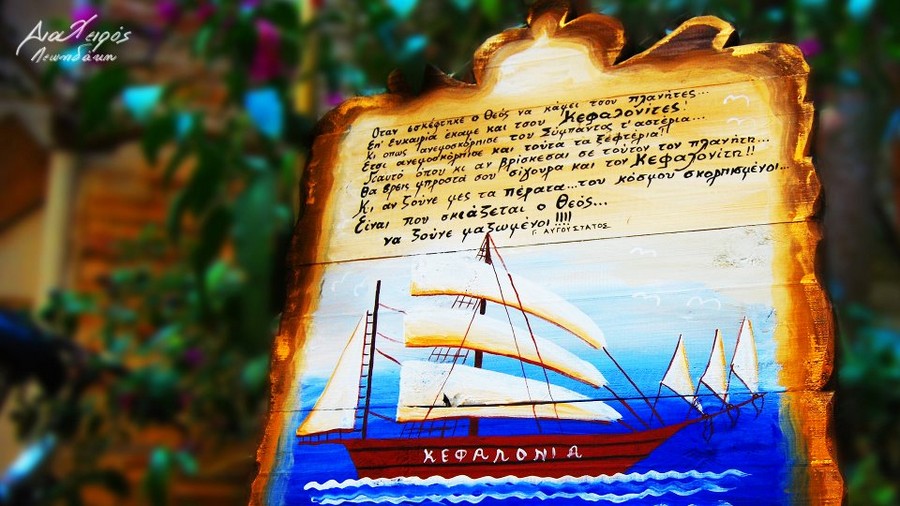 Δια Χειρός
Λεωνιδάκη
Όταν εσκέφτηκε ο Θεός να κάμει τσου πλανήτες...
Επ' ευκαιρία έκαμε και τσου Κεφαλονίτες!
Κι όπως ανεμοσκόρπισε του Σύμπαντος τ' αστέρια...
Έτσι ανεμοσκόρπισε και τούτα τα ξεφτέρια!!
Γι αυτό όπου κι αν βρίσκεσαι σε τούτον τον πλανήτη...
Θα βρεις μπροστά σου σίγουρα και τον Κεφαλονίτη!!
Κι αν ζούνε μες τα πέρατα...του κόσμου σκορπισμένοι...
Είναι που σκιάζεται ο Θεός...
να ζούνε μαζωμένοι!!!!
Γ. ΑΥΓΟΥΣΤΑΤΟΣ
ΚΕΦΑΛΟΝΙΑ